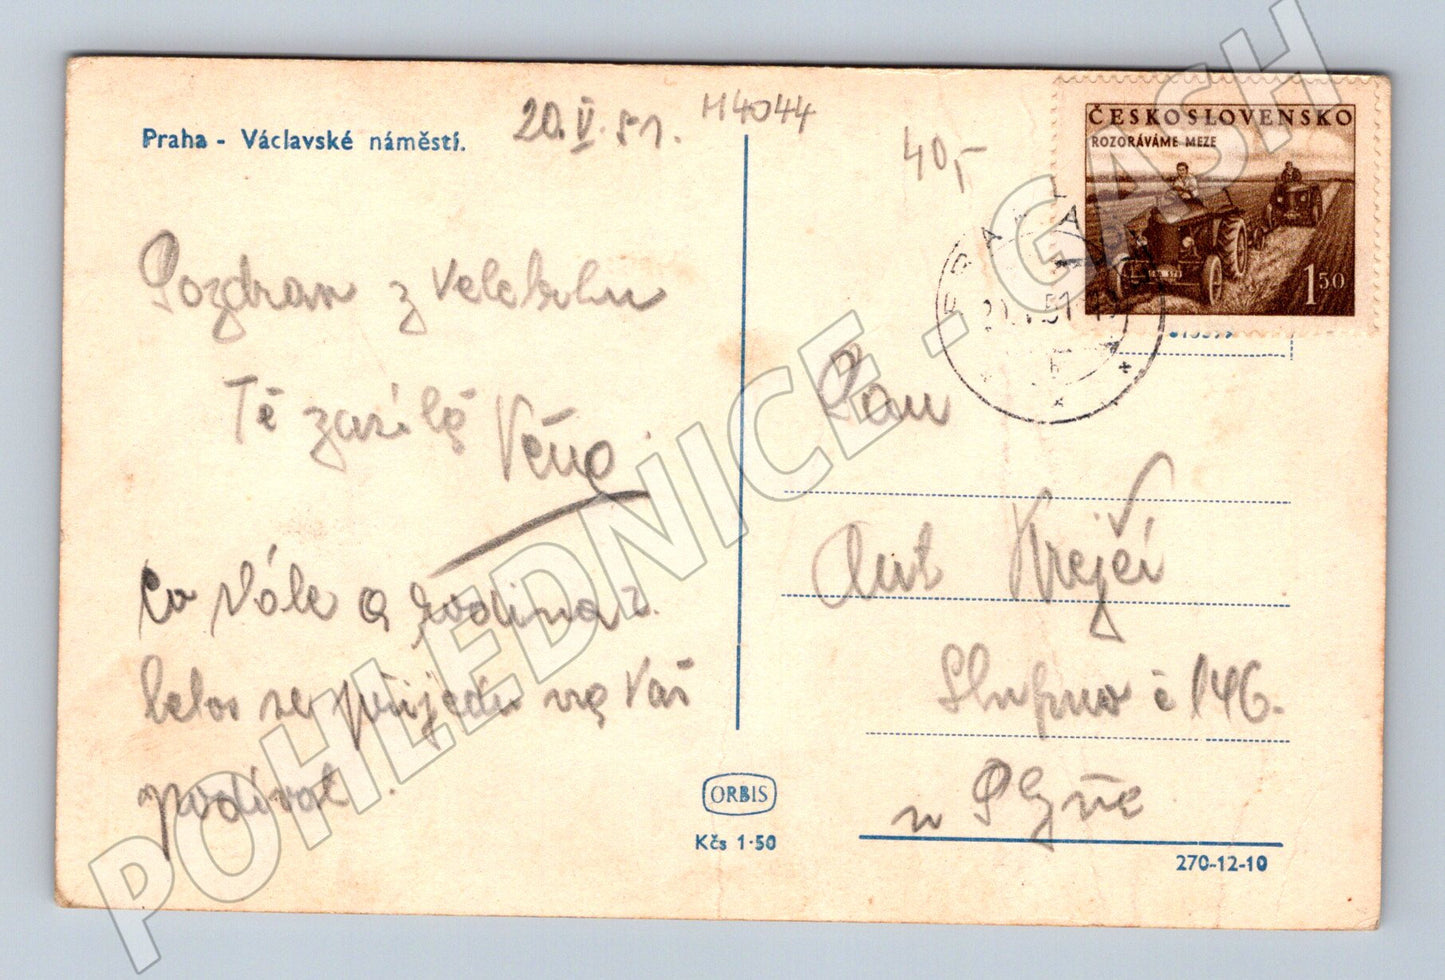 Praha - Václavské náměstí.
20.V.51.
M4044
40,-
ČESKOSLOVENSKO
ROZORÁVÁME MEZE
1 50
Pozdrav z Veletrhu
Tě zasílá Věna
Co Vále a rodina?
letos se přijedu na Váš
podívat.
Pan
Ant Krejčí
Slupno č 146.
u Plzně
ORBIS
Kčs 1·50
270-12-10
POHLEDNICE - GASH